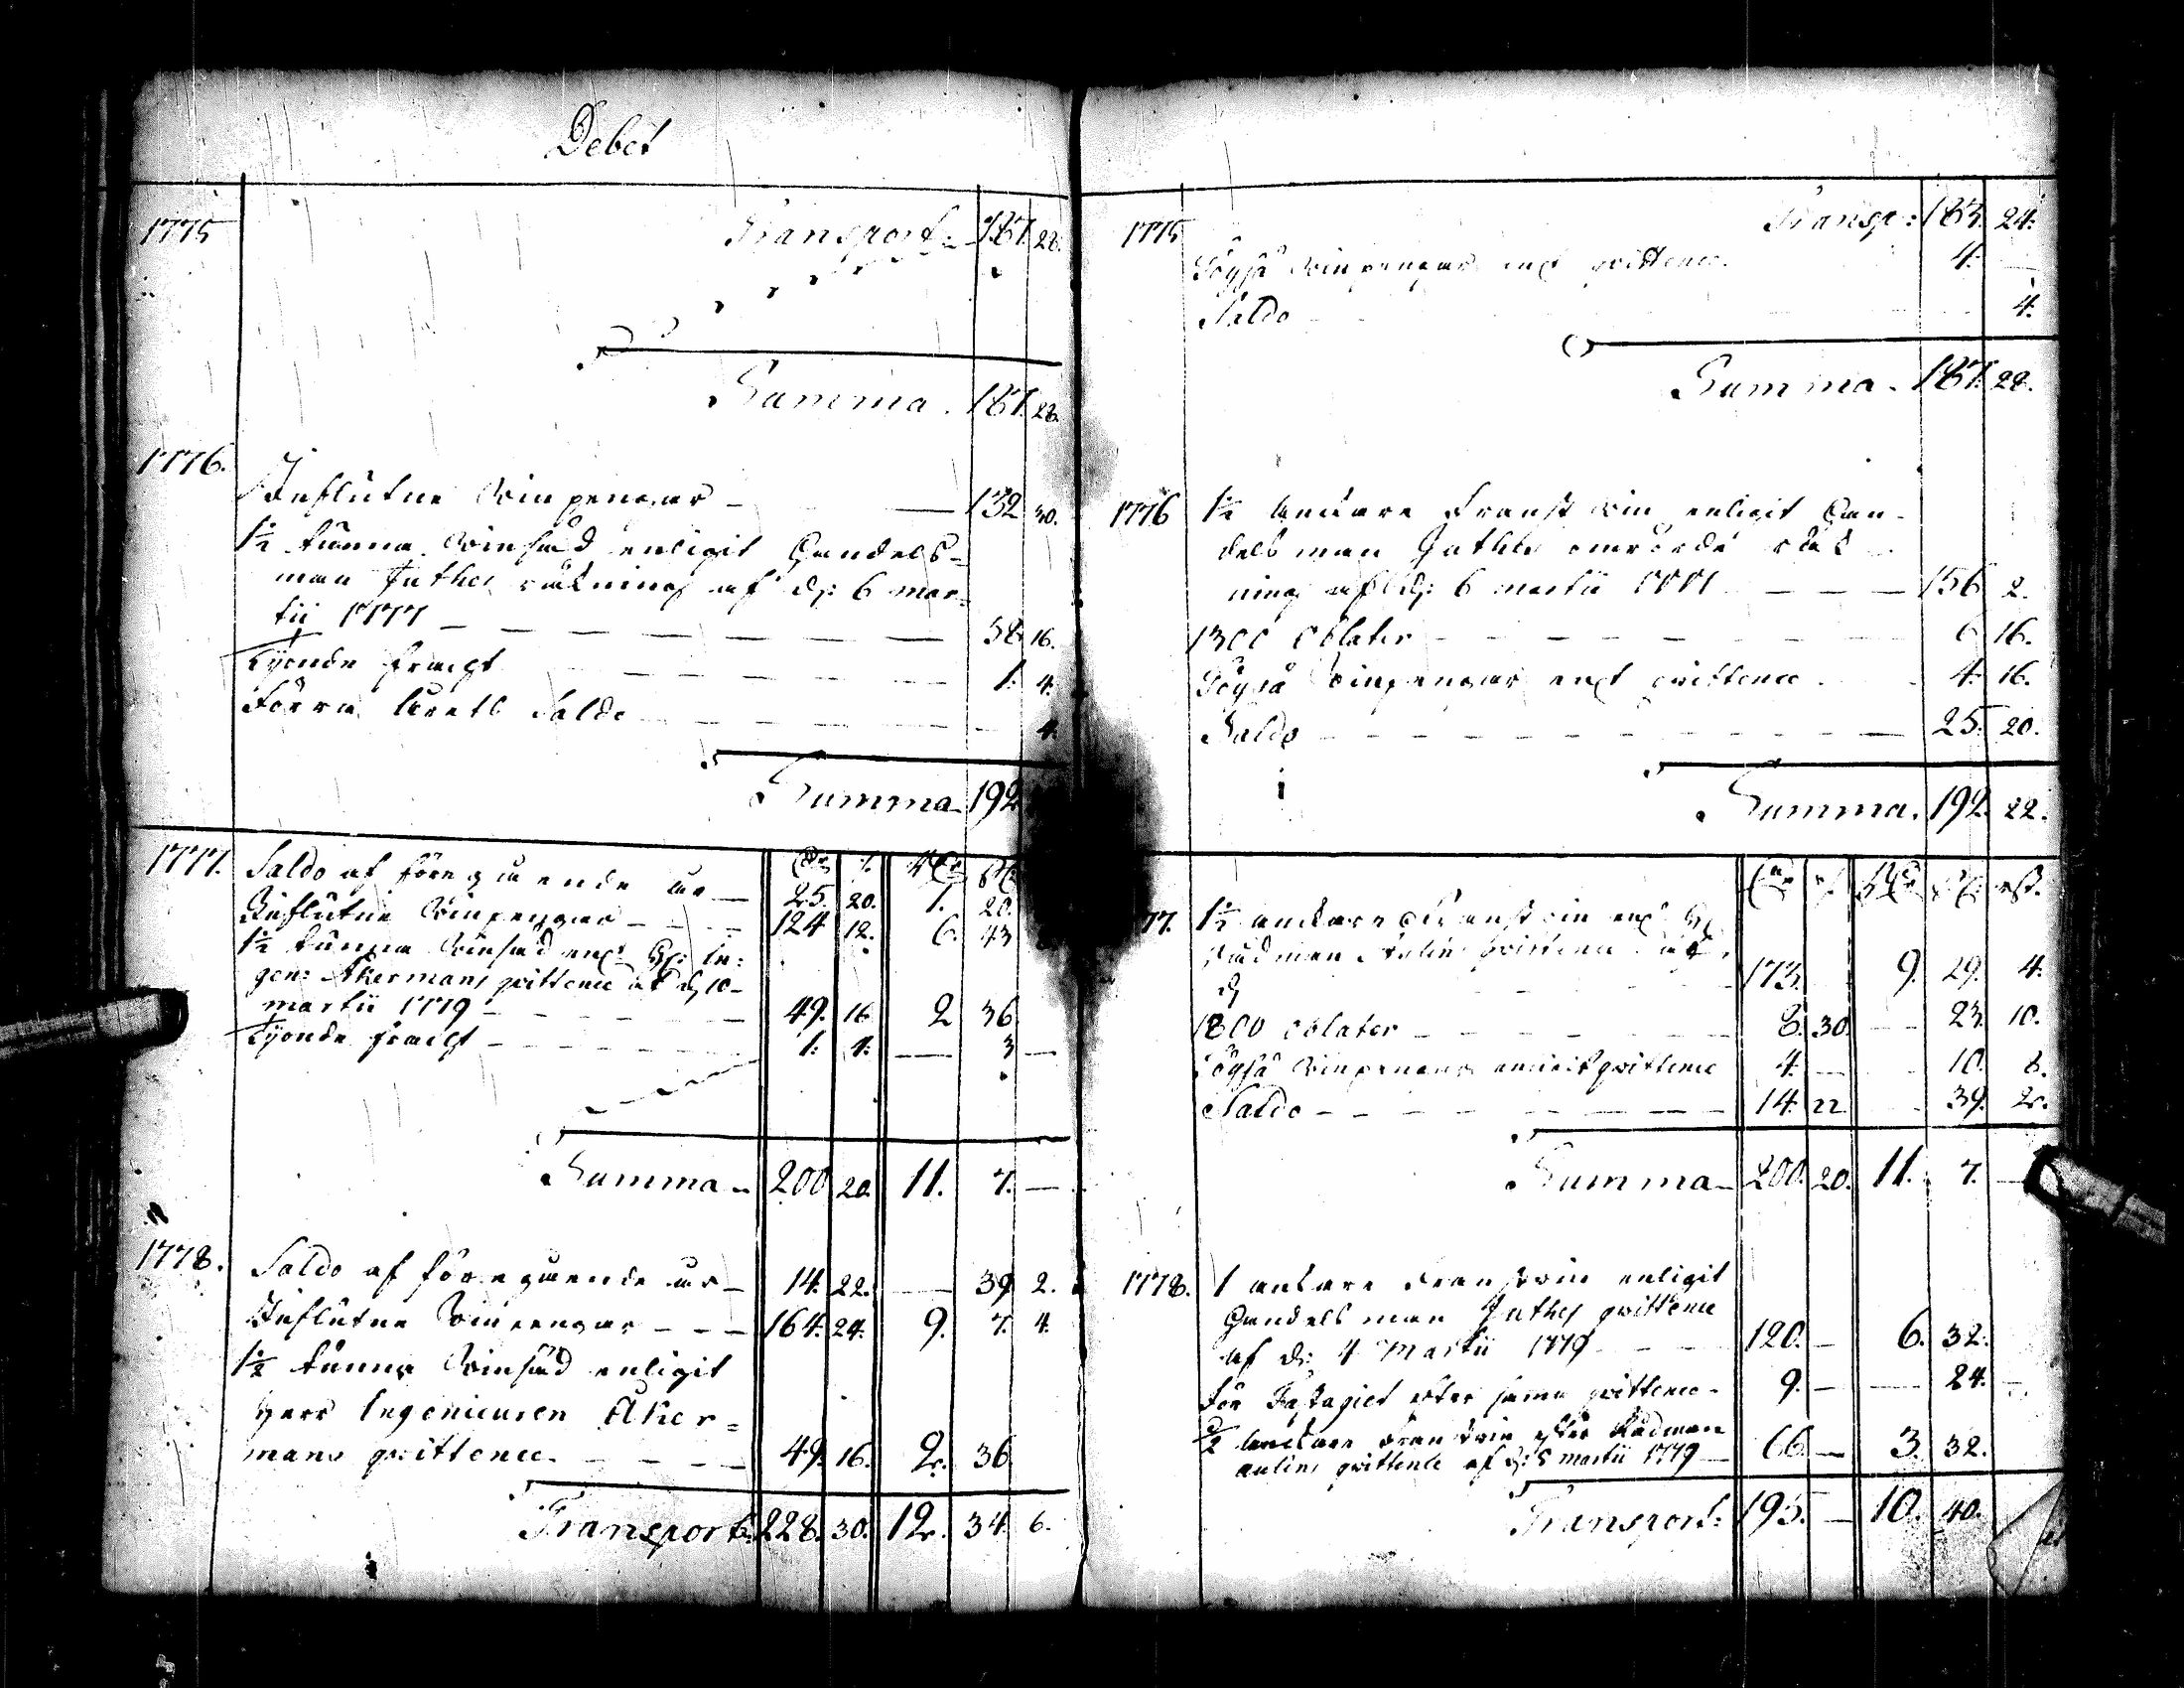 Debet
1775 Transport: 187. 28.
Summa. 187. 28.
1776.
Influtne Winpengar — 132 30.
1½ tunna Winsäd enligit Handels=
man Juthes räkning af d: 6 mar=
tii 1777 — 58. 16.
Tijonde fracht — 1. 4.
Förra årets Saldo — 4.
Summa 192
1777. Saldo af föregående år — 25. 20. 1. 20.
Influtne Winpengar — 124 12. 6. 43
1½ tunna Winsäd enl. H: In:
gen: Åkermans qvittence af d 10
martii 1779 — 49. 16 2 36
Tijonde fracht — 1. 4. — 3 —
Summa 200 20. 11. 7. —
1778. Saldo af föregående år — 14. 22. — 39 2.
Influtne Winpengar — 164. 24. 9. 7. 4.
1½ tunna Winsäd enligit
Herr Ingenieuren Åker=
mans qvittence. — 49. 16. 2. 36
Transport: 228. 30. 12. 34 6.
1775 Transp: 183. 24.
Högså Winpengar enl. qvittence. 4. —
Saldo 4.
Summa. 187. 28.
1776 1½ Anckare Franst win enligit Han-
dels man Juthes omrörde räk-
ning af d: 6 martii 1777 — 156 2.
1300 Oblater — 6 16.
Högså Winpengar enl. qvittence 4. 16.
Saldo — 25. 20.
Summa. 192. 22.
77. 1½ anckare Franst win enl. H
Rådman Aulins qvittence af
d 173. 9. 29. 4.
1800 oblater — 8. 30. — 23. 10.
Högså Winpengar enligit qvittence 4. — 10. 8.
Saldo — 14. 22 — 39. 2.
Summa 200. 20. 11. 7. —
1778. 1 anckare Franst win enligit
Handels man Juthes qvittence
af d: 4 Martii 1779 — 120. — 6. 32.
för Fastagiet efter samma qvittence. 9. — 24. —
½ Anckare Franst win efter Rådman
Aulins qvittence af d: 8 martii 1779 — 66. — 3. 32.
Transport: 195. — 10. 40.